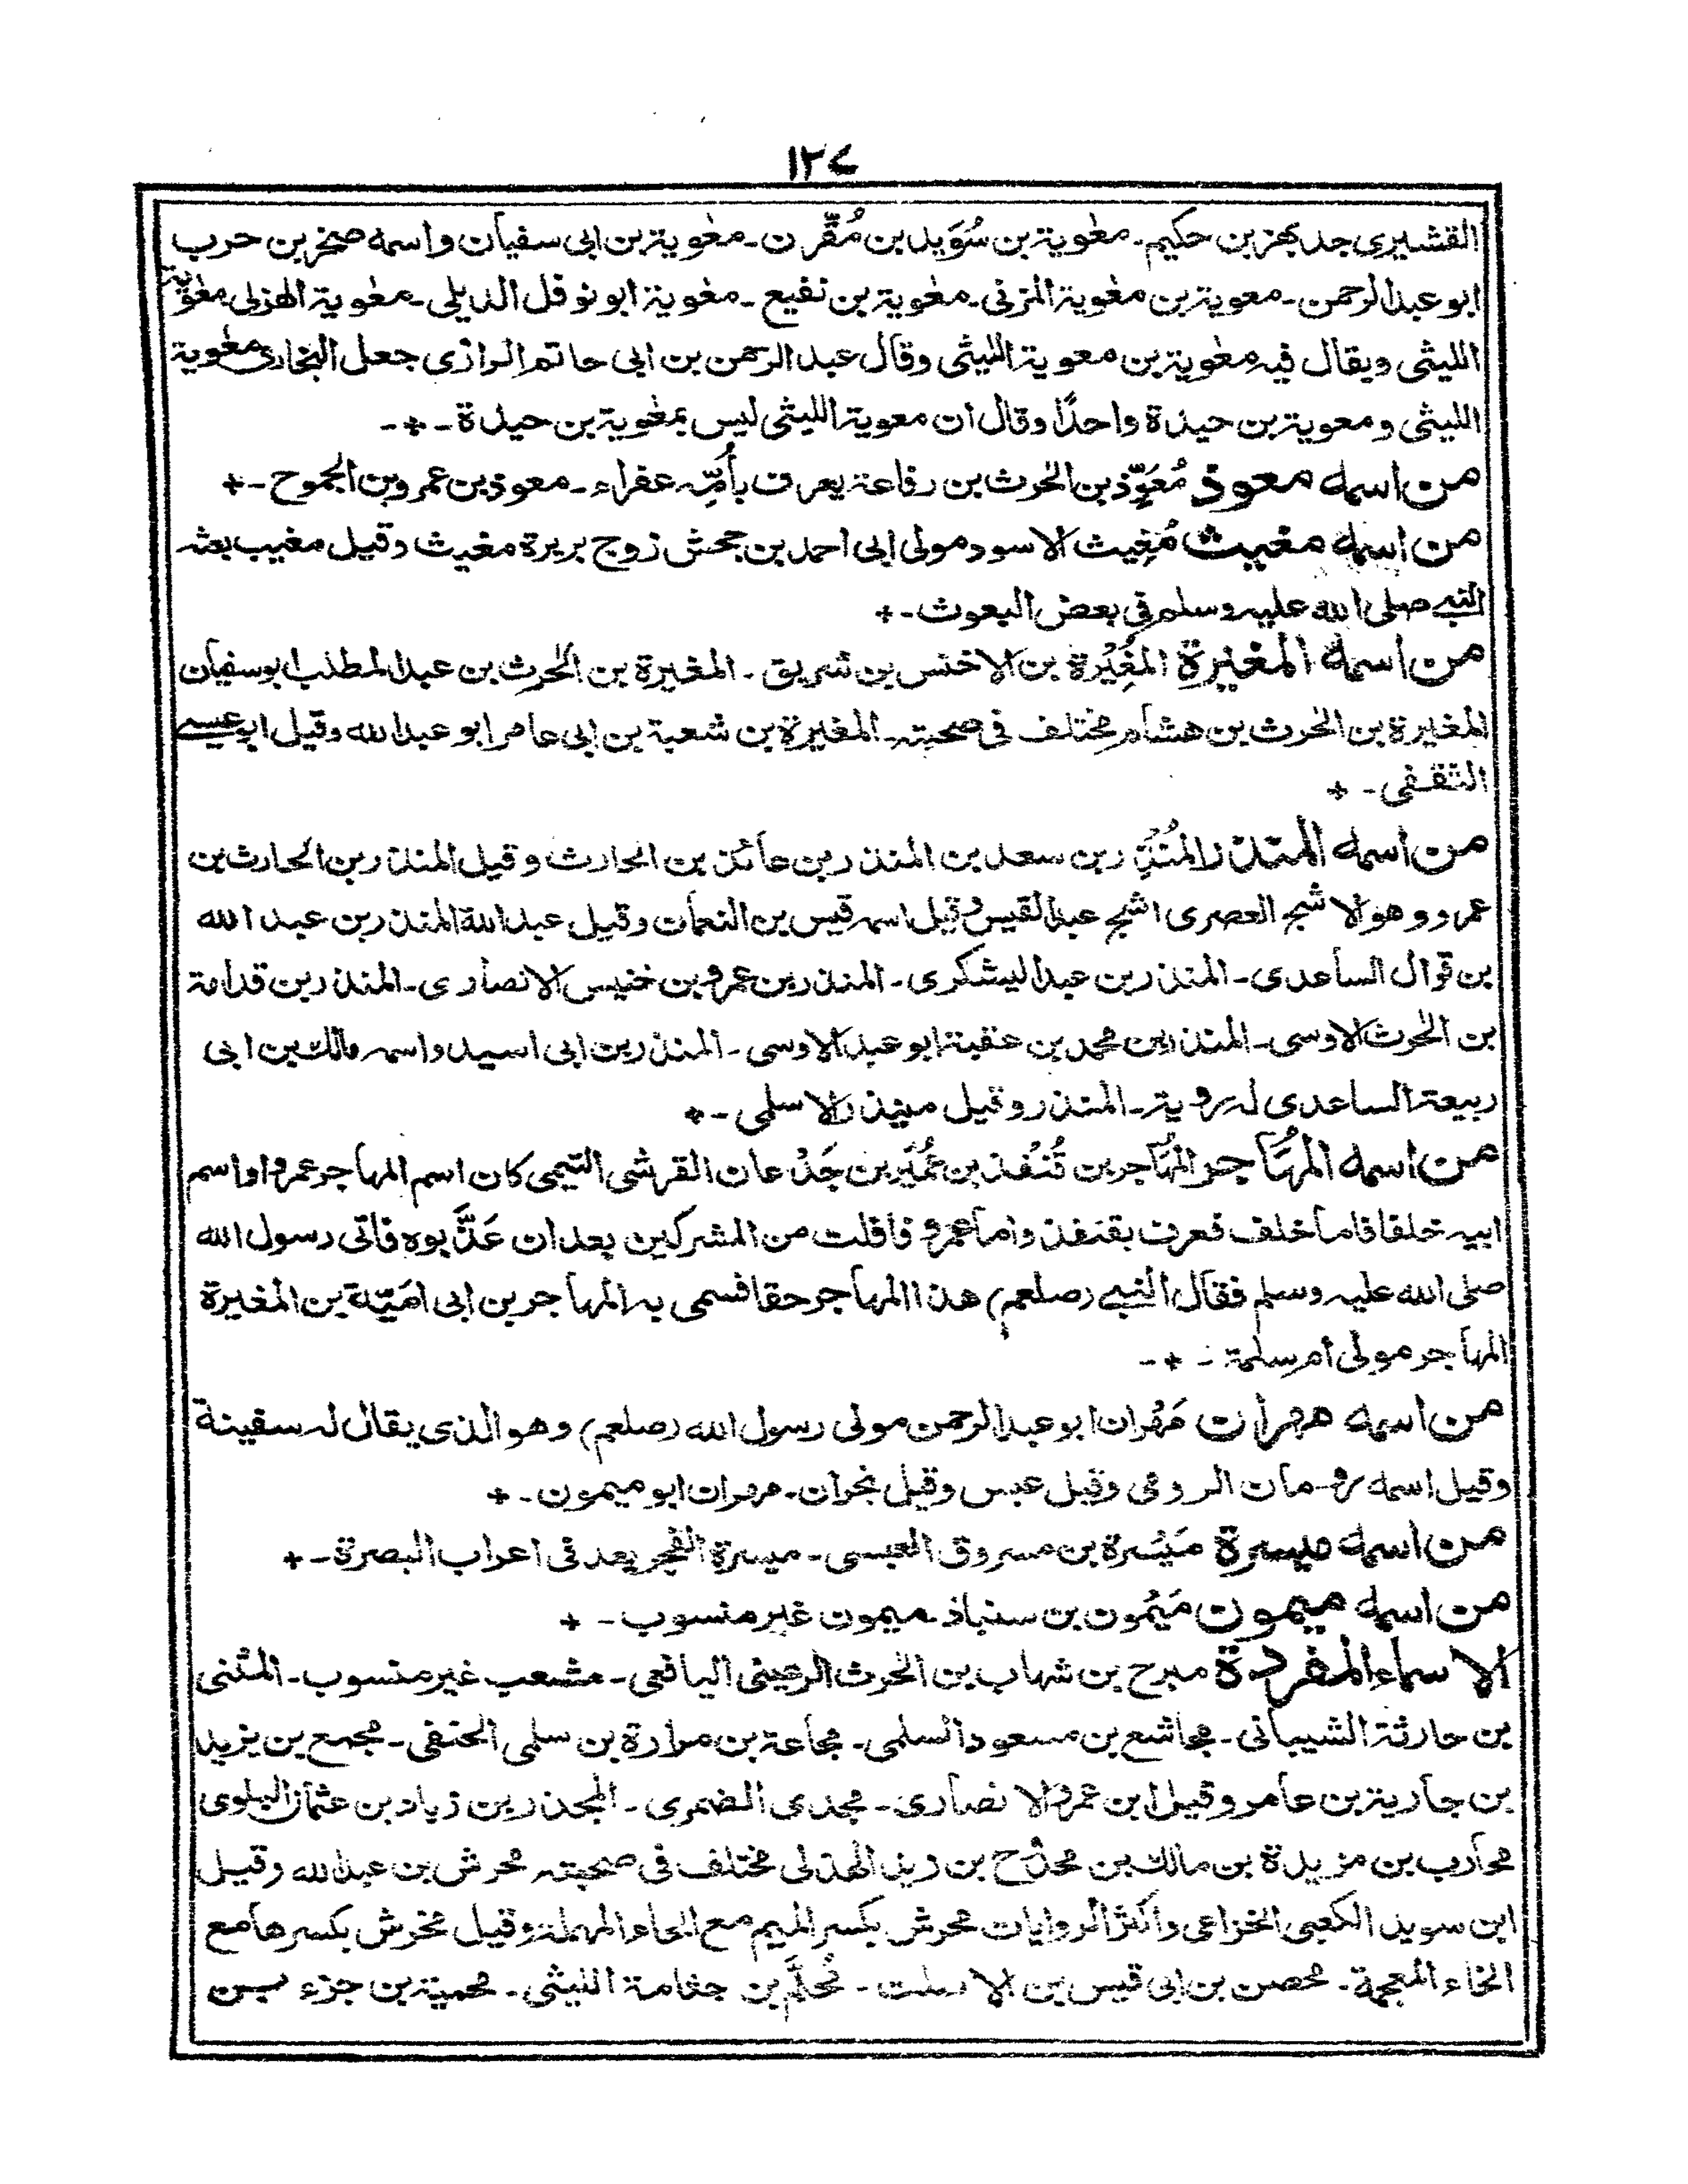 ١٢٧
القشيرى جد بهز بن حكيم ـ معٰوية بن سُوَيد بن مُقَرِّن ـ معٰوية بن ابى سفيان واسمه صخر بن حرب
ابو عبد الرحمن ـ معوية بن معٰوية المزنى ـ معٰوية بن نفيع ـ معٰوية ابو نوفل الديلى ـ معٰوية الهزلى معٰوية
الليثى ويقال فيه معٰوية بن معوية الليثى وقال عبد الرحمن بن ابى حاتم الرازى جعل البخارى معٰوية
الليثى ومعوية بن حيدة واحدًا وقال ان معوية الليثى ليس بمعٰوية بن حيدة ـ + ـ
من اسمه معوذ مُعَوِّذ بن الحٰرث بن رفاعة يعرف بأُمِّه عفراء ـ معوذ بن عمرو بن الجموح ـ +
من اسمه مغيث مُغِيث الاسود مولى ابى احمد بن جحش زوج بريرة مغيث وقيل مغيب بعثه
النبى صلى الله عليه وسلم فى بعض البعوث ـ +
من اسمه المغيرة المُغِيْرة بن الاخنس بن شريق ـ المغيرة بن الحٰرث بن عبد المطلب ابو سفيان
المغيرة بن الحٰرث بن هشام مختلف فى صحبته ـ المغيرة بن شعبة بن ابى عامر ابو عبد الله وقيل ابو عيسى
الثقفى ـ +
من اسمه المنذر المُنْذِر بن سعد بن المنذر بن عائذ بن الحارث وقيل المنذر بن الحارث بن
عمرو وهو الاشج العصرى اشج عبد القيس وقيل اسمه قيس بن النعمان وقيل عبد الله المنذر بن عبد الله
بن قوال الساعدى ـ المنذر بن عبد اليشكرى ـ المنذر بن عمرو بن خنيس الانصارى ـ المنذر بن قدامة
بن الحٰرث الاوسى ـ المنذر بن محمد بن عقبة ابو عبد الاوسى ـ المنذر بن ابى اسيد واسمه مالك بن ابى
ربيعة الساعدى له روية ـ المنذر وقيل منيذر الاسلمى ـ +
من اسمه المهَاجر المهَاجر بن قُنْفذ بن عُمَير بن جَدْعان القرشى التيمى كان اسم المهاجر عمرو او اسم
ابيه خلفا فاما خلف فعرف بقنفذ واما عمرو فافلت من المشركين بعد ان عَذَّبوه فاتى رسول الله
صلى الله عليه وسلم فقال النبى (صلعم) هذا المهاجر حقا فسمى به المهاجر بن ابى امَيّة بن المغيرة
المهاجر مولى أم سلمة ـ + ـ
من اسمه مهران مَهْران ابو عبد الرحمن مولى رسول الله (صلعم) وهو الذى يقال له سفينة
وقيل اسمه رومان الرومى وقيل عبس وقيل نجران ـ مهران ابو ميمون ـ +
من اسمه ميسرة مَيْسَرة بن مسروق العبسى ـ ميسرة الفجر يعد فى اعراب البصرة ـ +
من اسمه ميمون مَيْمُون بن سنباذ ـ ميمون غير منسوب ـ +
الاسماء المفردة مبرح بن شهاب بن الحٰرث الرعينى اليافعى ـ مشعب غير منسوب ـ المثنى
بن حارثة الشيبانى ـ مجاشع بن مسعود السلمى ـ مجاعة بن مرارة بن سلمى الحنفى ـ مجمع بن يزيد
بن جارية بن عامر وقيل ابن عمرو الانصارى ـ مجدى الضمرى ـ المجذر بن زياد بن عثمان البلوى
محارب بن مزيدة بن مالك بن محذح بن زيد الهذلى مختلف فى صحبته محرش بن عبد الله وقيل
ابن سويد الكعبى الخزاعى واكثر الروايات محرش بكسر الميم مع الحاء المهملة وقيل مخرش بكسرها مع
الخاء المعجمة ـ محصن بن ابى قيس بن الاسلت ـ مُحَلَّم بن جثامة الليثى ـ محمية بن جزء بن